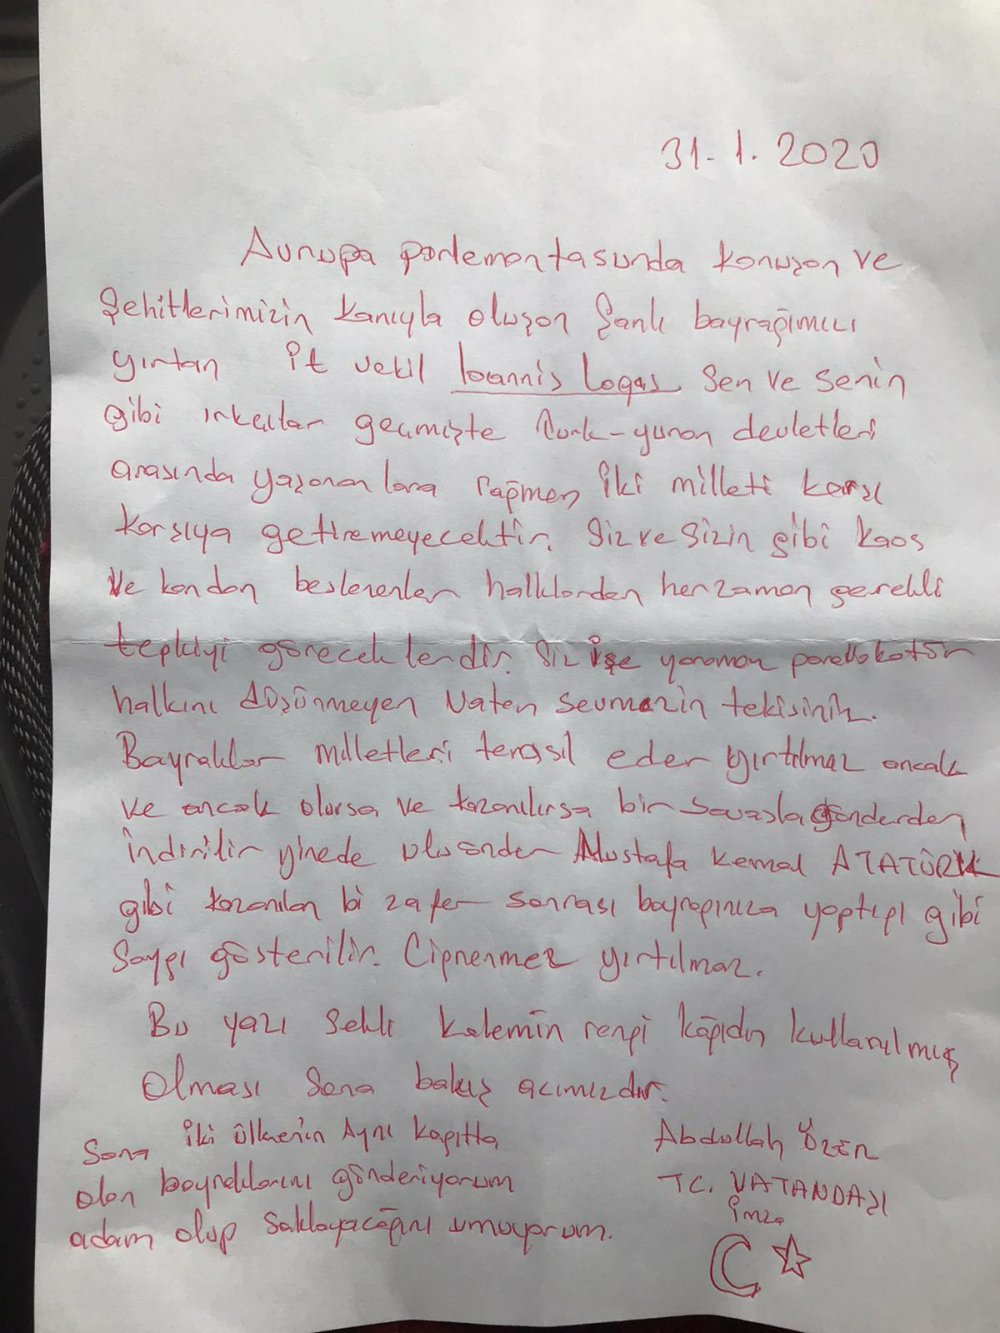 31.1.2020
Avrupa parlemontasunda konuşan ve
Şehitlerimizin kanıyla oluşan Şanlı bayrağımızı
yırtan it vekil Ioannis Logas Sen ve senin
gibi ırkçılar geçmişte Türk-yunan devletleri
arasında yaşananlara rağmen iki milleti karşı
karşıya getiremeyecektir. Siz ve sizin gibi kaos
ve kandan beslenenler halklardan herzaman gerekli
tepkiyi göreceklerdir. Siz ise yaramaz
halkını düşünmeyen vatan sevmezin tekisiniz.
Bayraklar milletleri temsil eder yırtılmaz ancak
ve ancak olursa ve kazanılırsa bir savaşla gönderden
indirilir yinede ulu önder Mustafa Kemal ATATÜRK
gibi kazanılan bi zafer sonrası bayrağınıza yaptığı gibi
Saygı gösterilir. Çiğnenmez yırtılmaz.
Bu yazı şekli kalemin rengi kağıdın kullanılmış
olması Sana bakış açımızdır.
Sana iki ülkenin Aynı kağıtta
olan bayraklarını gönderiyorum
adam olup saklayacağını umuyorum.
Abdullah ÖZER
TC. VATANDAŞI
imza